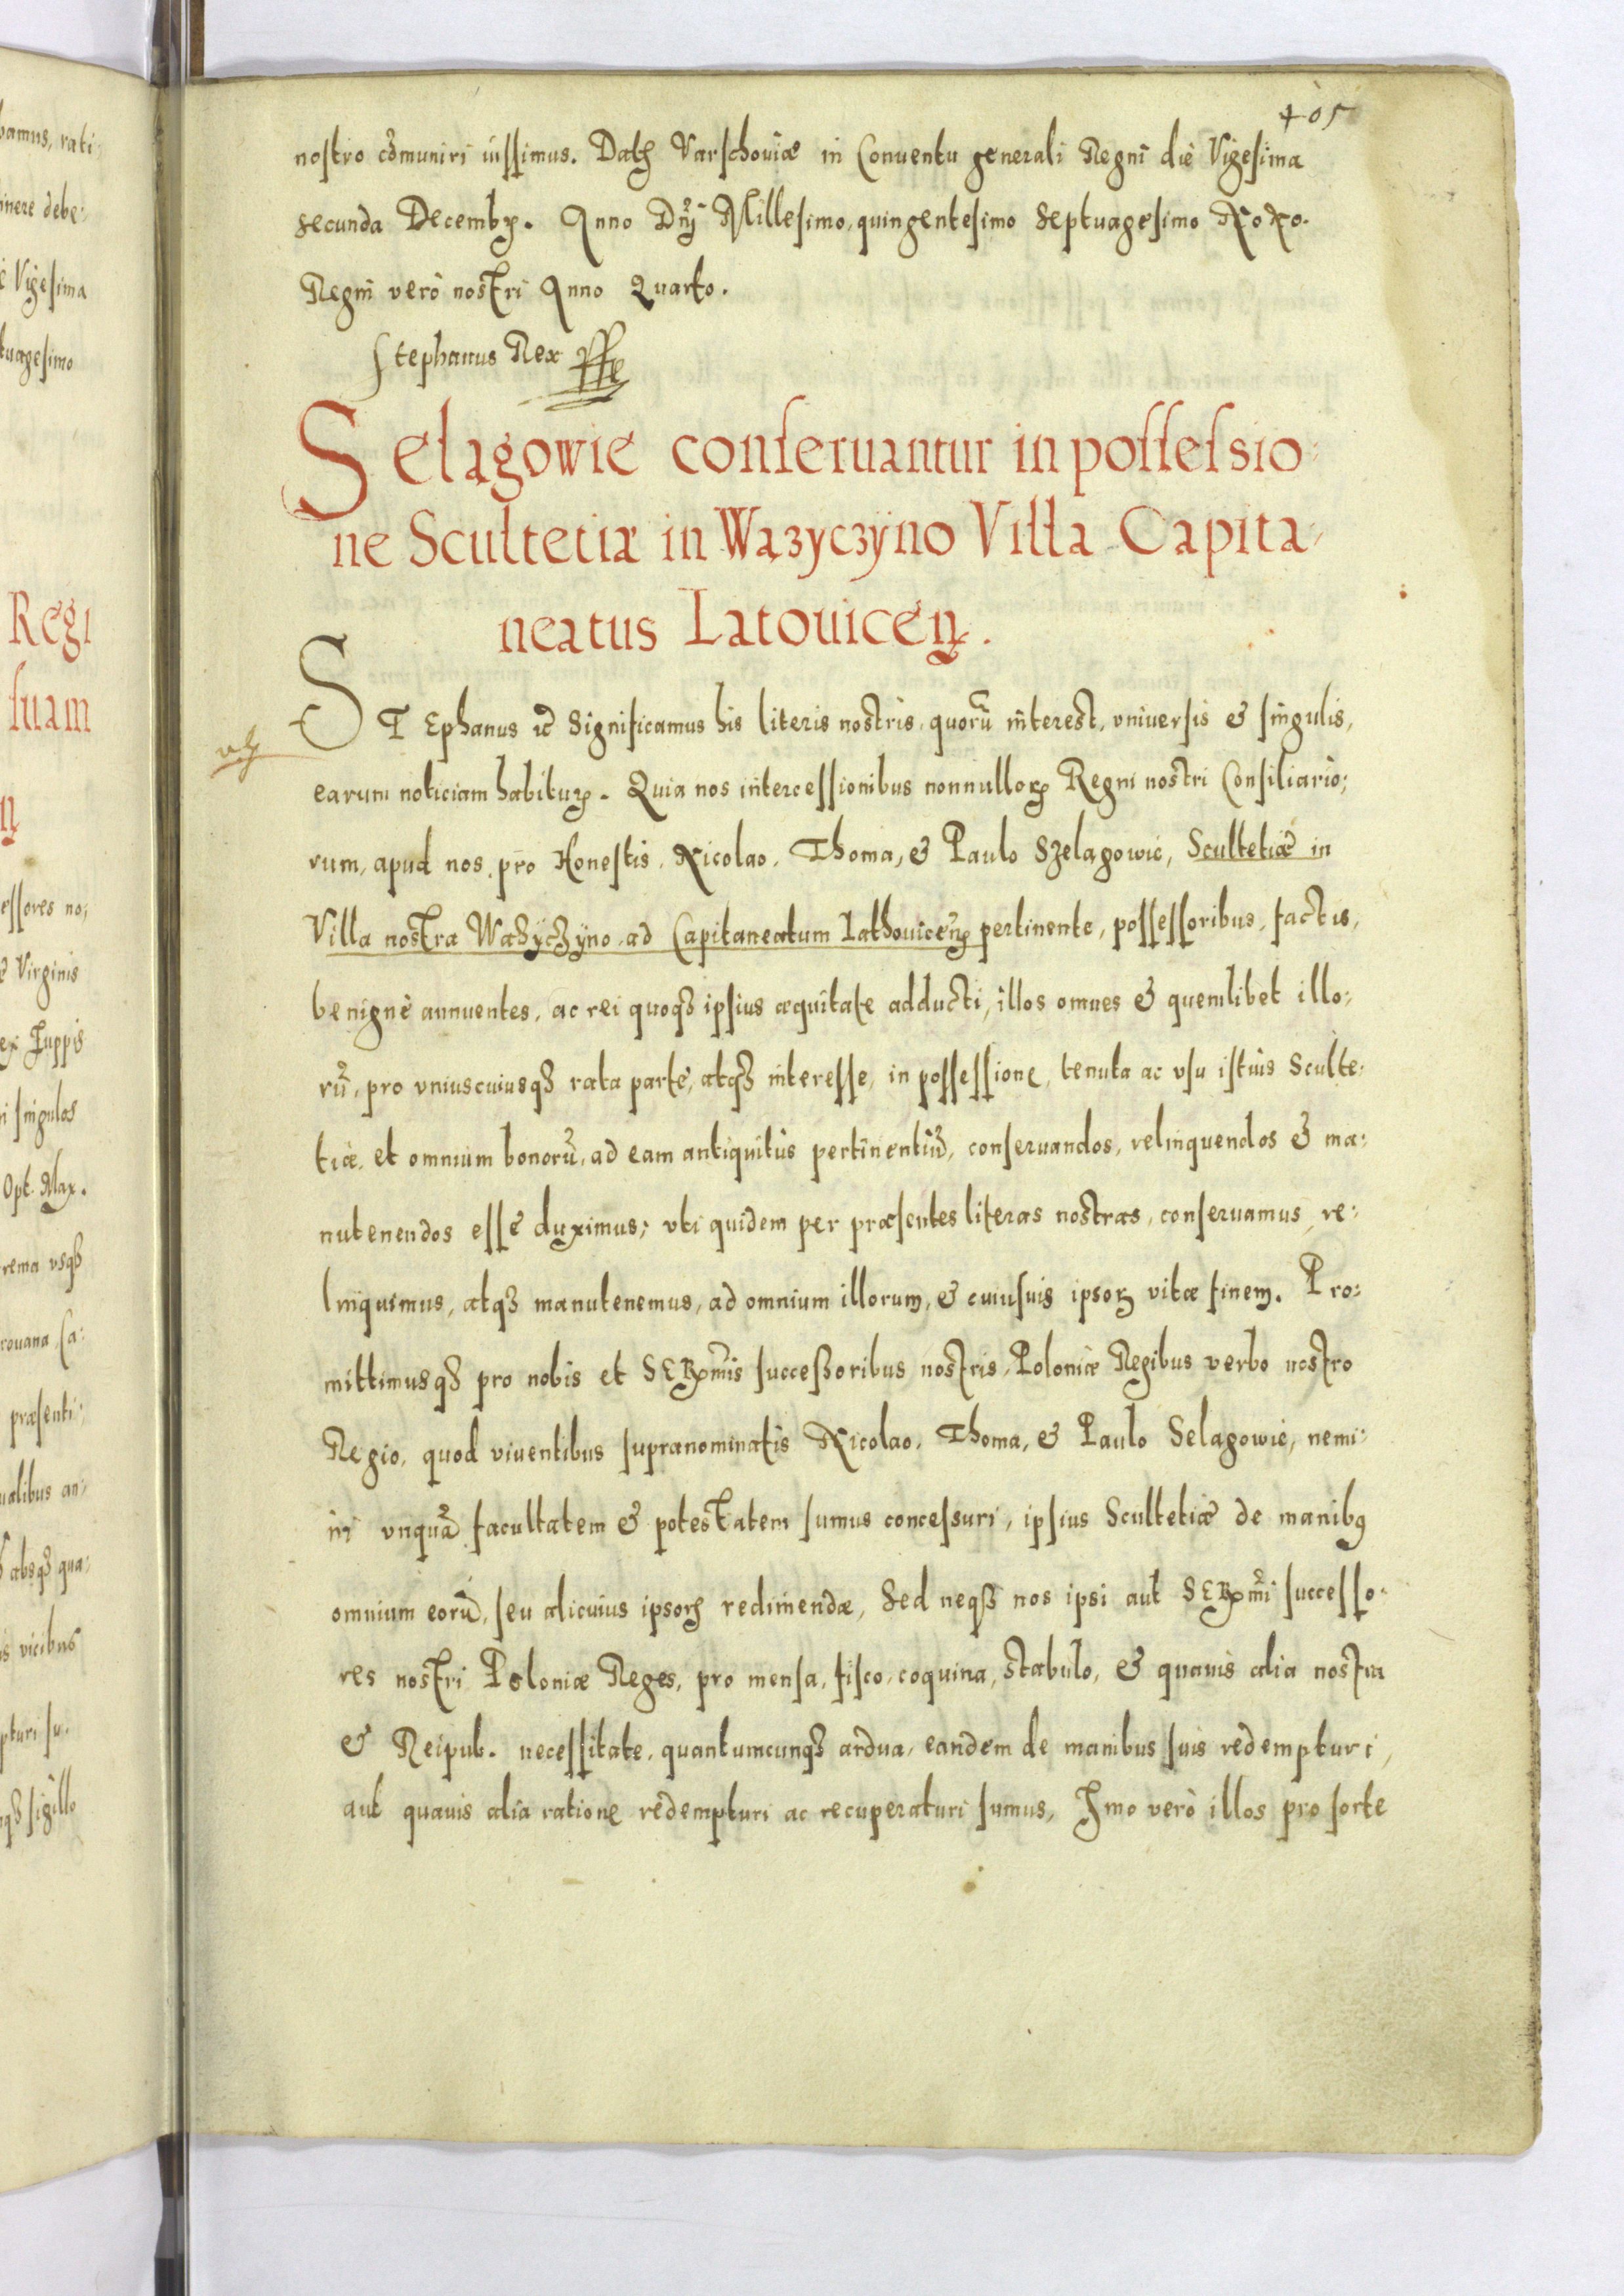 405
nostro cōmuniri iussimus. Datꝫ Varschouiæ in Conuentu generali Regni die Vigesima
secunda Decembꝝ. Anno Dnj Millesimo, quingentesimo Septuagesimo Nono.
Regni verò nostri Anno Quarto.
Stephanus Rex
Selagowie conseruantur in possessio:
ne Scultetiæ in Wązyczÿno Villa Capita-
neatus Latouiceṅ.
STEphanus ꝛc Significamus his literis nostris, quorū interest, vniuersis & singulis,
earum noticiam habituꝝ. Quia nos intercessionibus nonnulloꝝ Regni nostri Consiliario:
rum, apud nos pro Honestis, Nicolao, Thoma, & Paulo Szelągowie, Scultetiæ in
Villa nostra Wązÿczÿno, ad Capitaneatum Lathouiceṅ pertinente, possessoribus, factis,
benignè annuentes, ac rei quoqꝫ ipsius æquitate adducti, illos omnes & quemlibet illo:
rū, pro vniuscuiusqꝫ rata parte, atqꝫ interesse, in possessione, tenuta ac vsu istius Sculte:
tiæ, et omnium bonorū, ad eam antiquitùs pertinentiū, conseruandos, relinquendos & ma:
nutenendos esse duximus; vti quidem per præsentes literas nostras, conseruamus, re:
linquimus, atqꝫ manutenemus, ad omnium illorum, & cuiusuis ipsoꝝ vitæ finem. Pro:
mittimusqꝫ pro nobis et SERmis successoribus nostris, Poloniæ Regibus verbo nostro
Regio, quod viuentibus supranominatis Nicolao, Thoma, & Paulo Selagowie, nemi:
ni vnquā facultatem & potestatem sumus concessuri, ipsius Scultetiæ de manibꝰ
omnium eorū, seu alicuius ipsoꝝ redimendæ, Sed neqꝫ nos ipsi aut SERmi successo:
res nostri Poloniæ Reges, pro mensa, fisco, coquina, stabulo, & quauis alia nostra
& Reipub. necessitate, quantumcunqꝫ ardua, eandem de manibus suis redempturi,
aut quauis alia ratione redempturi ac recuperaturi sumus, Imo verò illos pro sorte